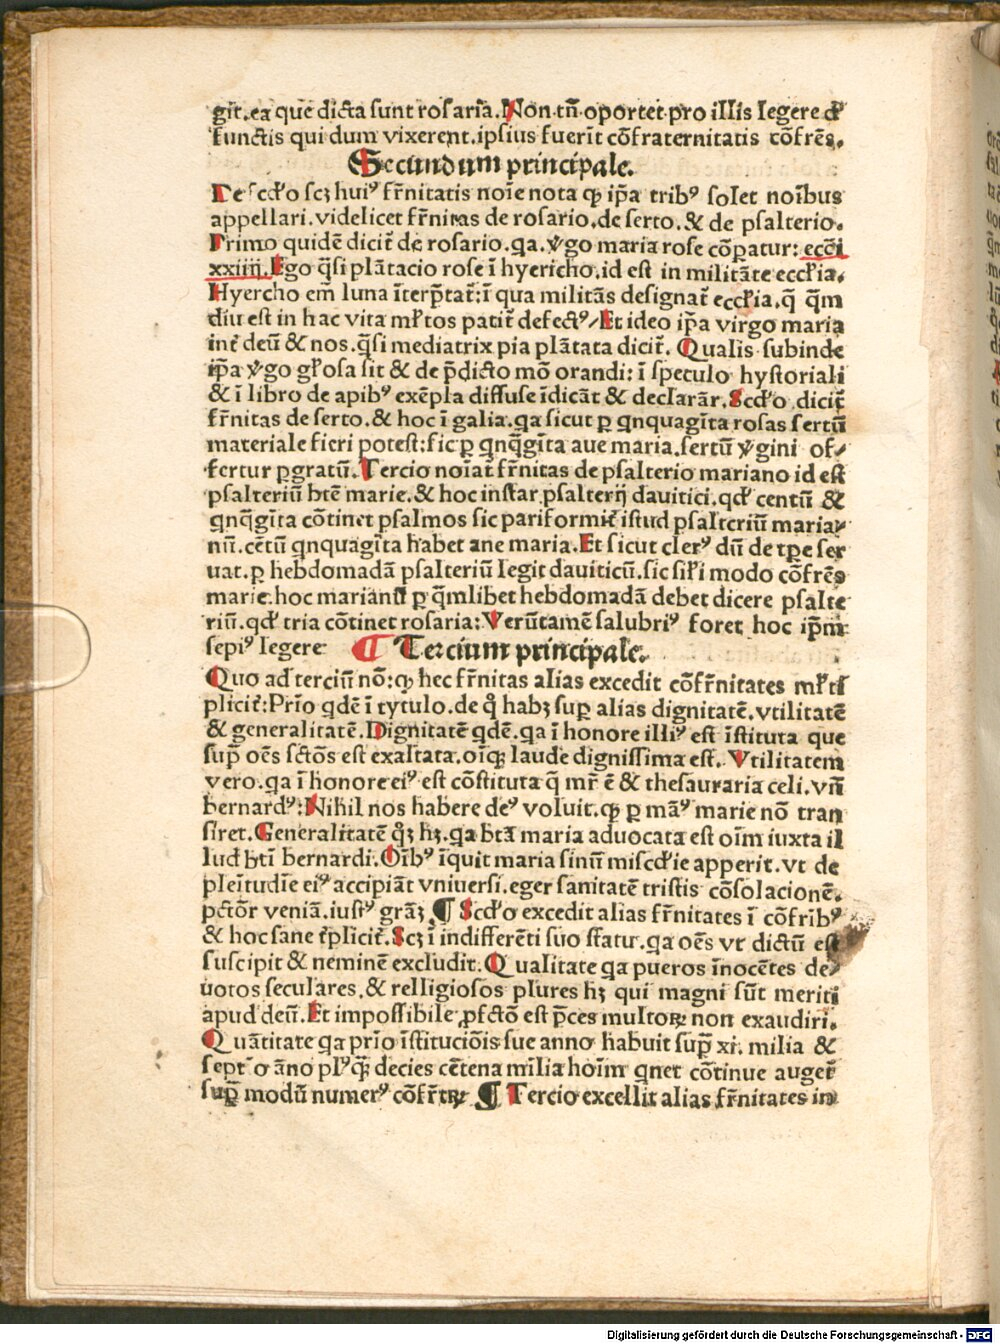 git. ea que dicta sunt rosaria. Non tñ oportet pro illis legere de
functis qui dum vixerent. ipsius fuerīt cōfraternitatis cōfrēs.
Secundum principale.
De scďo scꝫ huiꝰ fr̄nitatis noīe nota ꝙ ip̄a tribꝰ solet noībus
appellari. videlicet fr̄nitas de rosario. de serto. & de psalterio.
Primo quidē dicit̄ de rosario. qa. v̄go maria rose cōparatur: eccī
xxiiij. Ego q̄si plātacio rose ī hyericho. id est in militāte eccľia.
Hyercho em̄ luna īterp̄tat̄: ī qua militās designat̄ eccľia. q̄ q̄m
diu est in hac vita mľtos patit̄ defectꝰ / Et ideo ip̄a virgo maria
int̄ deū & nos. q̄si mediatrix pia plātata dicit̄. Qualis subinde
ip̄a v̄go gľosa sit & de p̄dicto mō orandi: ī speculo hystoriali
& ī libro de apibꝰ exēpla diffuse īdicāt & declarār̄. Scďo dicit̄
fr̄nitas de serto. & hoc ī galia. qa sicut ꝑ qnquagīta rosas sertū
materiale fieri potest: sic ꝑ qnq̄gīta aue maria. sertū v̄gini of-
fertur ꝑgratū. Tercio noīat̄ fr̄nitas de psalterio mariano id est
psalteriū btē marie. & hoc instar psalterij dauitici. qď centū &
qnq̄gīta cōtinet psalmos sic pariformit̄ istud psalteriū maria-
nū. cētū qnquagīta habet aue maria. Et sicut clerꝰ dū de tp̄e ser
uat. ꝑ hebdomadā psalteriū legit dauiticū. sic siľi modo cōfrēs
marie. hoc marianū ꝑ q̄mlibet hebdomadā debet dicere psalte
riū. qď tria cōtinet rosaria: Verūtamē salubriꝰ foret hoc ip̄m
sepiꝰ legere ¶ Tercium principale.
Quo ad terciū nō: ꝙ hec fr̄nitas alias excedit cōfr̄nitates mľti
plicit̄: Prīo qdē ī tytulo. de q̊ habꝫ suꝑ alias dignitatē. vtilitatē
& generalitatē. Dignitatē qdē. qa ī honore illiꝰ est īstituta que
suꝑ oēs sctōs est exaltata. oīqꝫ laude dignissima est. Vtilitatem
vero. qa ī honore eiꝰ est cōstituta q̄ mr̄ ē & thesauraria celi. vñ
bernardꝰ: Nihil nos habere deꝰ voluit. ꝙ ꝑ māꝰ marie nō tran
siret. Generalitatē q̊ꝫ hꝫ. qa btā maria aduocata est oīm iuxta il
lud btī bernardi. Oībꝰ īquit maria sinū miscďie apperit. vt de
pleītudīe eiꝰ accipiāt vniuersi. eger sanitatē tristis cōsolacionē.
pctōr veniā. iustꝰ grāꝫ ¶ Scďo excedit alias fr̄nitates ī cōfrībꝰ
& hoc sane t̄plicit̄. Scꝫ ī indifferēti suo statu. qa oēs vt dictū est
suscipit & neminē excludit. Qualitate qa pueros īnocētes de-
uotos seculares. & relligiosos plures hꝫ qui magni sūt meriti
apud deū. Et impossibile ꝓfctō est p̄ces multoꝝ non exaudiri.
Quātitate qa prīo īstituciōis sue anno habuit sup̄ xi. milia &
septīo āno plꝰqꝫ decies cētena milia hoīm qnet cōtinue auget̄
sup̄ modū numerꝰ cōfr̄tꝝ ¶ Tercio excellit alias fr̄nitates in
Digitalisierung gefördert durch die Deutsche Forschungsgemeinschaft - DFG